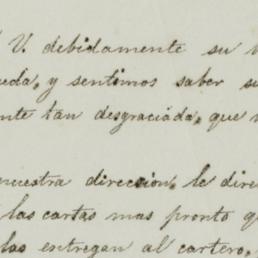 V. debidamente su
y sentimos saber
tan desgraciada, que
nuestra direccion, le
las cartas mas pronto
entregan al cartero,